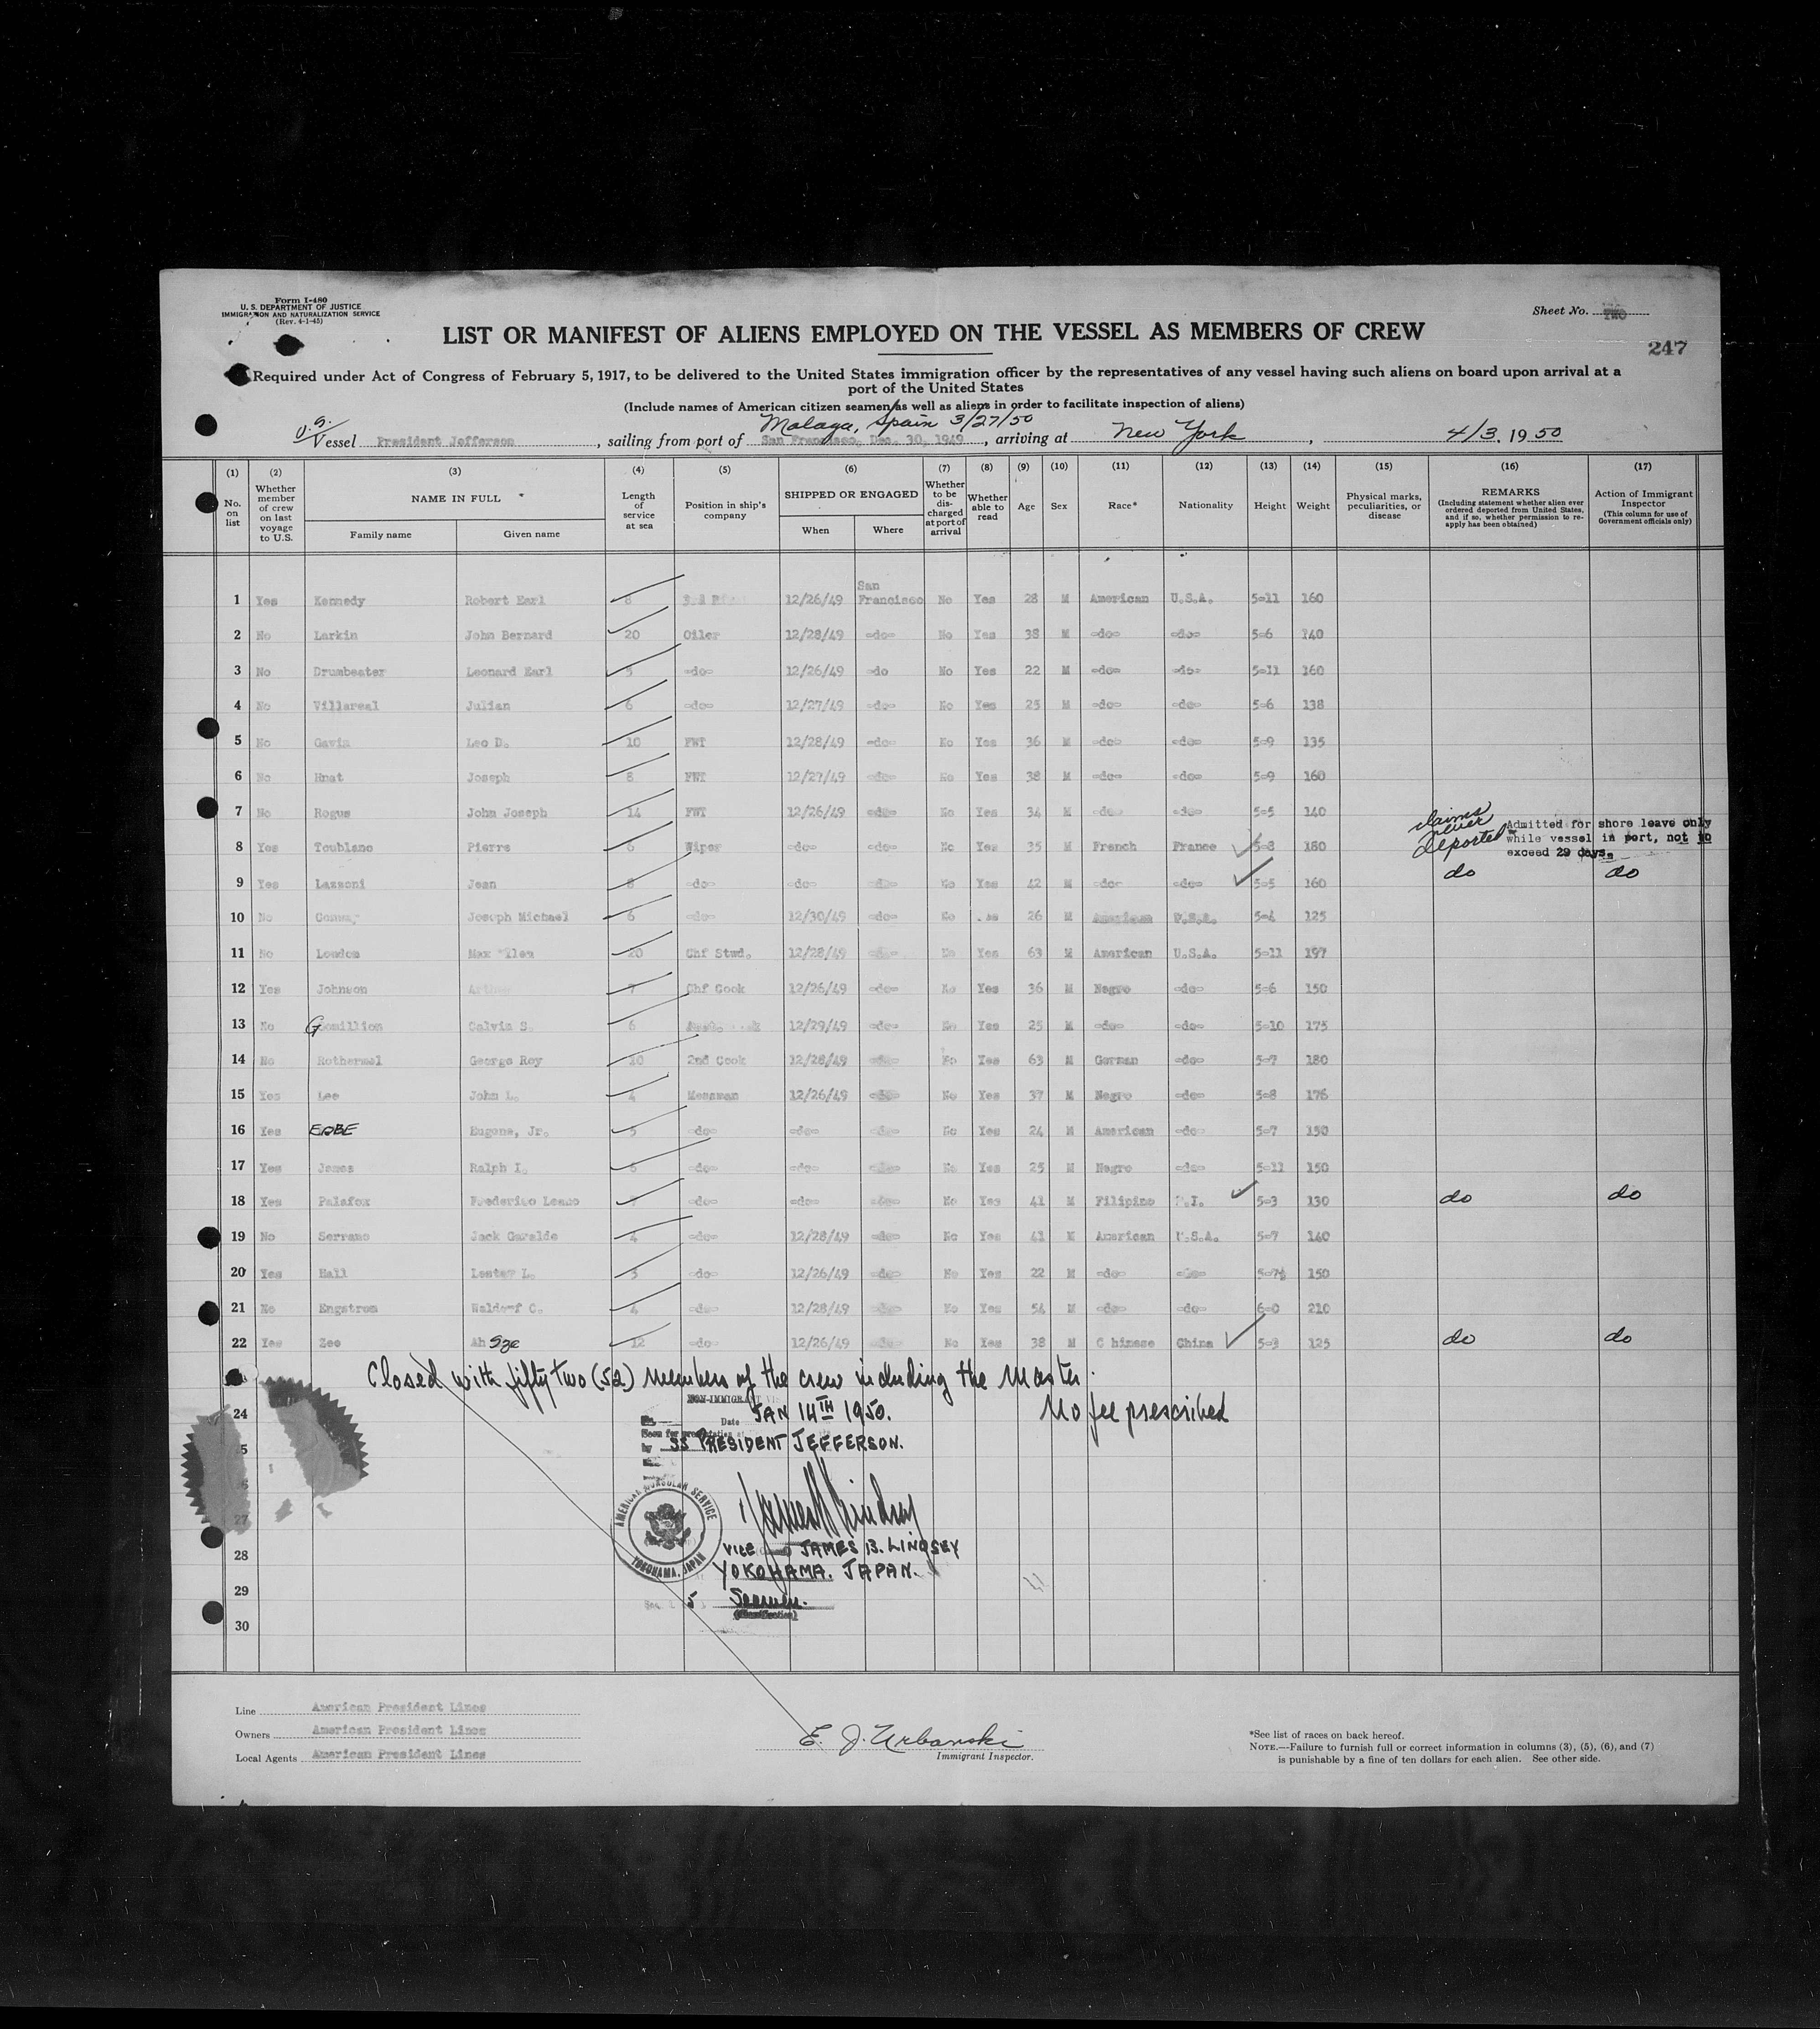 Form I-480
U. S. DEPARTMENT OF JUSTICE
IMMIGRATION AND NATURALIZATION SERVICE
(Rev. 4-1-45)
Sheet No. TWO
247
LIST OR MANIFEST OF ALIENS EMPLOYED ON THE VESSEL AS MEMBERS OF CREW
Required under Act of Congress of February 5, 1917, to be delivered to the United States immigration officer by the representatives of any vessel having such aliens on board upon arrival at a
port of the United States
(Include names of American citizen seamen as well as aliens in order to facilitate inspection of aliens)
U.S. Malaga, Spain 3/27/50
Vessel President Jefferson, sailing from port of San Francisco, Dec. 30, 1949, arriving at New York, 4/3, 1950
(1) (2) (3) (4) (5) (6) (7) (8) (9) (10) (11) (12) (13) (14) (15) (16) (17)
No. on list
Whether member of crew on last voyage to U.S.
NAME IN FULL *
Family name Given name
Length of service at sea
Position in ship's company
SHIPPED OR ENGAGED
When Where
Whether to be discharged at port of arrival
Whether able to read
Age
Sex
Race*
Nationality
Height
Weight
Physical marks, peculiarities, or disease
REMARKS
(Including statement whether alien ever ordered deported from United States, and if so, whether permission to reapply has been obtained)
Action of Immigrant Inspector
(This column for use of Government officials only)
1 Yes Kennedy Robert Earl 8 12/26/49 San Francisco No Yes 28 M American U.S.A. 5-11 160
2 No Larkin John Bernard 20 Oiler 12/28/49 -do- No Yes 38 M -do- -do- 5-6 140
3 No Drumbeater Leonard Earl 5 -do- 12/26/49 -do No Yes 22 M -do- -do- 5-11 160
4 No Villareal Julian 6 -do- 12/27/49 -do- No Yes 25 M -do- -do- 5-6 138
5 No Gavin Leo D. 10 FWT 12/28/49 -do- No Yes 36 M -do- -do- 5-9 135
6 No Hnat Joseph 8 FWT 12/27/49 -do- No Yes 38 M -do- -do- 5-9 160
7 No Rogus John Joseph 14 FWT 12/26/49 -do- No Yes 34 M -do- -do- 5-5 140
8 Yes Toublanc Pierre 6 Wiper -do- -do- No Yes 35 M French France 5-8 180 claims never deported Admitted for shore leave only while vessel in port, not to exceed 29 days.
9 Yes Lazzoni Jean 8 -do- -do- -do- No Yes 42 M -do- -do- 5-5 160 do do
10 No Joseph Michael 6 -do- 12/30/49 -do- No 26 M American U.S.A. 5-4 125
11 No Loudon Max 20 Chf Stwd. 12/28/49 -do- No Yes 63 M American U.S.A. 5-11 197
12 Yes Johnson 7 Chf Cook 12/26/49 -do- No Yes 36 M Negro -do- 5-6 150
13 No Gomillion Calvin S. 6 12/29/49 -do- No Yes 25 M -do- -do- 5-10 175
14 No Rothermel George Roy 10 2nd Cook 12/28/49 -do- No Yes 63 M German -do- 5-7 180
15 Yes Lee John L. 4 Messman 12/26/49 -do- No Yes 37 M Negro -do- 5-8 176
16 Yes Eugene, Jr. 5 -do- -do- -do- No Yes 24 M American -do- 5-7 150
17 Yes James Ralph I. 6 -do- -do- -do- No Yes 25 M Negro -do- 5-11 150
18 Yes Palafox Frederico Leano -do- -do- -do- No Yes 41 M Filipino P.I. 5-3 130 do do
19 No Serrano Jack Garalde 4 -do- 12/28/49 -do- No Yes 41 M American U.S.A. 5-7 140
20 Yes Hall Lester L. 5 -do- 12/26/49 -do- No Yes 22 M -do- -do- 5-7½ 150
21 No Engstrom Waldorf C. 4 -do- 12/28/49 -do- No Yes 54 M -do- -do- 6-0 210
22 Yes Zee Ah Sze 12 -do- 12/26/49 -do- No Yes 38 M Chinese China 5-3 125 do do
Closed with fifty two (52) members of the crew including the Master.
NON-IMMIGRANT
24 Date JAN 14TH 1950. No fee prescribed
Seen for presentation at
by SS PRESIDENT JEFFERSON.
AMERICAN CONSULAR SERVICE
YOKOHAMA, JAPAN
27
28 VICE JAMES B. LINDSEY
YOKOHAMA, JAPAN.
29 5 Seamen.
(Classification)
30
Line American President Lines
Owners American President Lines
Local Agents American President Lines
E. J. Urbanski
Immigrant Inspector.
*See list of races on back hereof.
NOTE.—Failure to furnish full or correct information in columns (3), (5), (6), and (7)
is punishable by a fine of ten dollars for each alien. See other side.